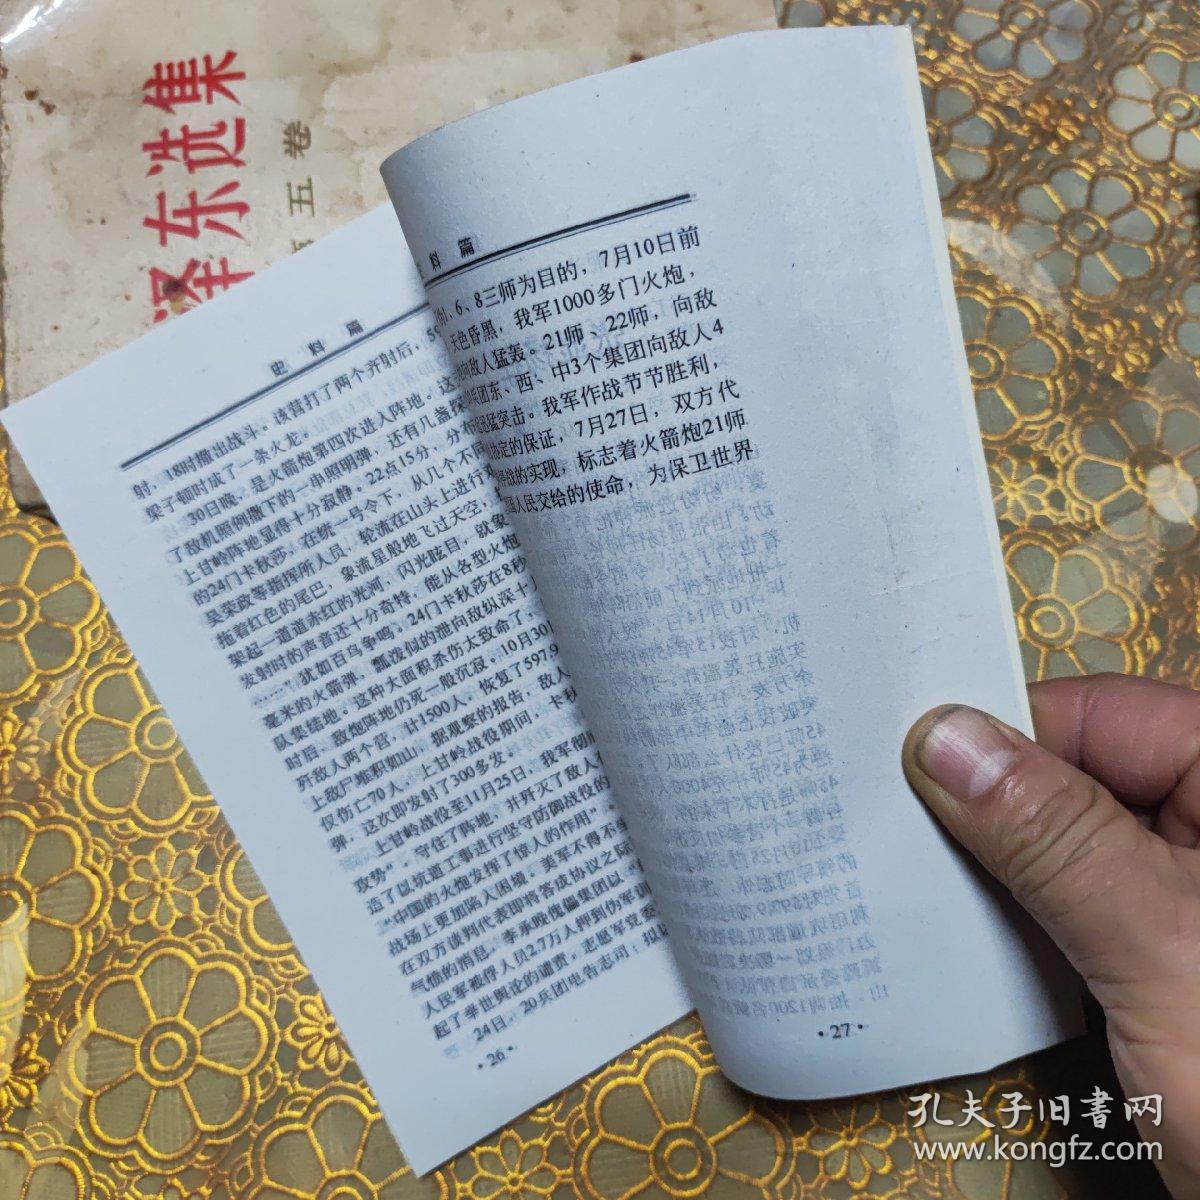 泽东选集
五卷
史料篇
射，18时撤出战斗。该营打了两个齐射后，5
梁子顿时成了一条火龙。
30日晚，是火箭炮第四次进入阵地。这
了敌机照例撒下的一串照明弹，还有几盏探
上甘岭阵地显得十分寂静。22点15分，分布
的24门卡秋莎，在统一号令下，从几个不同
吴荣政等指挥所人员，轮流在山头上进行
拖着红色的尾巴，象流星般地飞过天空，
架起一道道赤红的光河，闪光眩目，就象
发射时的声音还十分奇特，能从各型火炮
……犹如百鸟争鸣。24门卡秋莎在8秒
毫米的火箭弹，瓢泼似的泄向敌纵深十
队集结地。这种大面积杀伤太致命了。
时后，敌炮阵地仍死一般沉寂。10月30
歼敌人两个营，计1500人，恢复了597.9
上敌尸堆积如山。据观察的报告，敌人
仅伤亡70人。上甘岭战役期间，卡秋
弹，这次即发射了300多发。
上甘岭战役至11月25日，我军彻底
攻势”，守住了阵地，并歼灭了敌人
造了以坑道工事进行坚守防御战役的
“中国的火炮发挥了惊人的作用”
战场上更加陷入困境。美军不得不
在双方谈判代表即将签成协议之际
气愤的消息，李承晚傀儡集团以“
人民军被俘人员2.7万人押到伪军训
起了举世舆论的谴责，志愿军党委
24日，20兵团电告志司：拟以
·26·
料篇
、6、8三师为目的，7月10日前
天色昏黑，我军1000多门火炮，
向敌人猛轰。21师、22师，向敌
兵团东、西、中3个集团向敌人4
迅猛突击。我军作战节节胜利，
协定的保证，7月27日，双方代
停战的实现，标志着火箭炮21师
国人民交给的使命，为保卫世界
·27·
孔夫子旧書网
www.kongfz.com